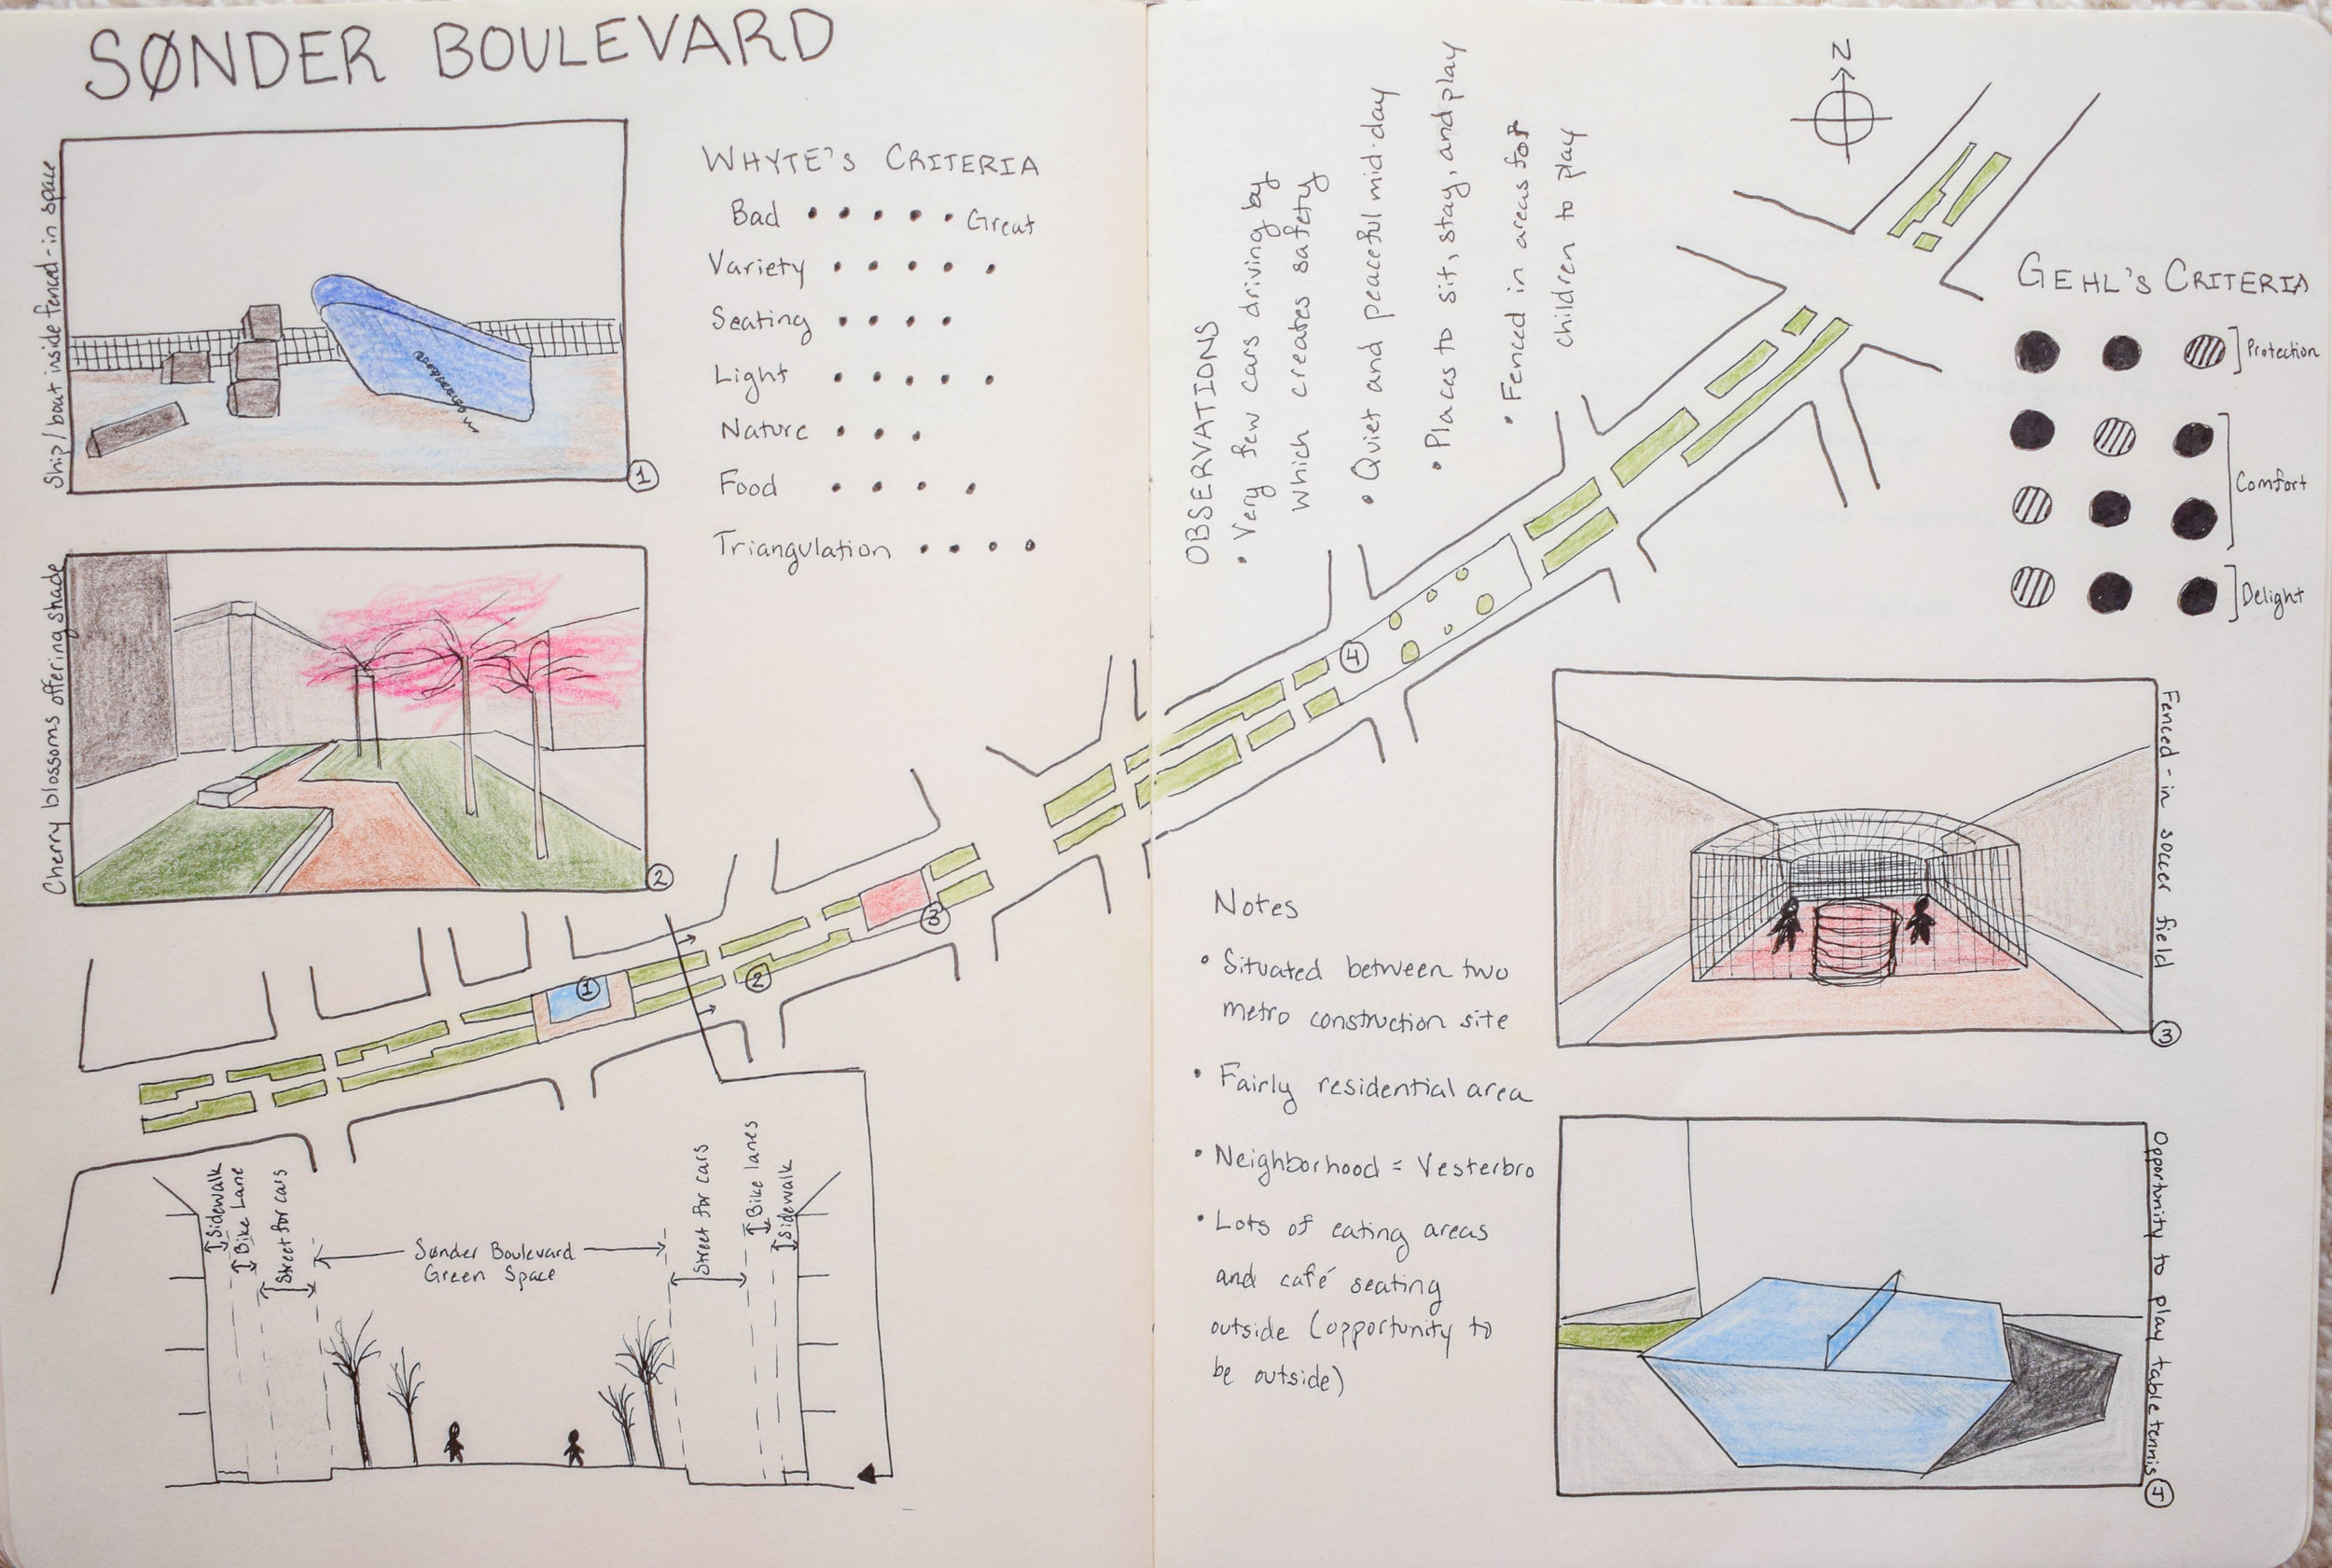 SØNDER BOULEVARD
Ship/boat inside fenced-in space
1
WHYTE'S CRITERIA
Bad • • • • • Great
Variety • • • • •
Seating • • • •
Light • • • • •
Nature • • •
Food • • • •
Triangulation • • • •
Cherry blossoms offering shade
2
1
2
3
Sidewalk
Bike Lane
Street for cars
Sønder Boulevard
Green Space
Street for cars
Bike lanes
Sidewalk
OBSERVATIONS
• Very few cars driving by
which creates safety
• Quiet and peaceful mid-day
• Places to sit, stay, and play
• Fenced in areas for
children to play
N
4
GEHL'S CRITERIA
Protection
Comfort
Delight
Notes
• Situated between two
metro construction site
• Fairly residential area
• Neighborhood = Vesterbro
• Lots of eating areas
and café seating
outside (opportunity to
be outside)
Fenced-in soccer field
3
Opportunity to play table tennis
4